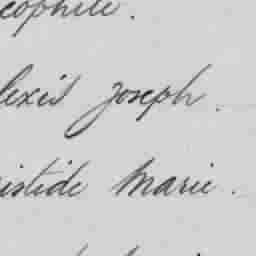 éophile.
lexis Joseph.
istide Marie.